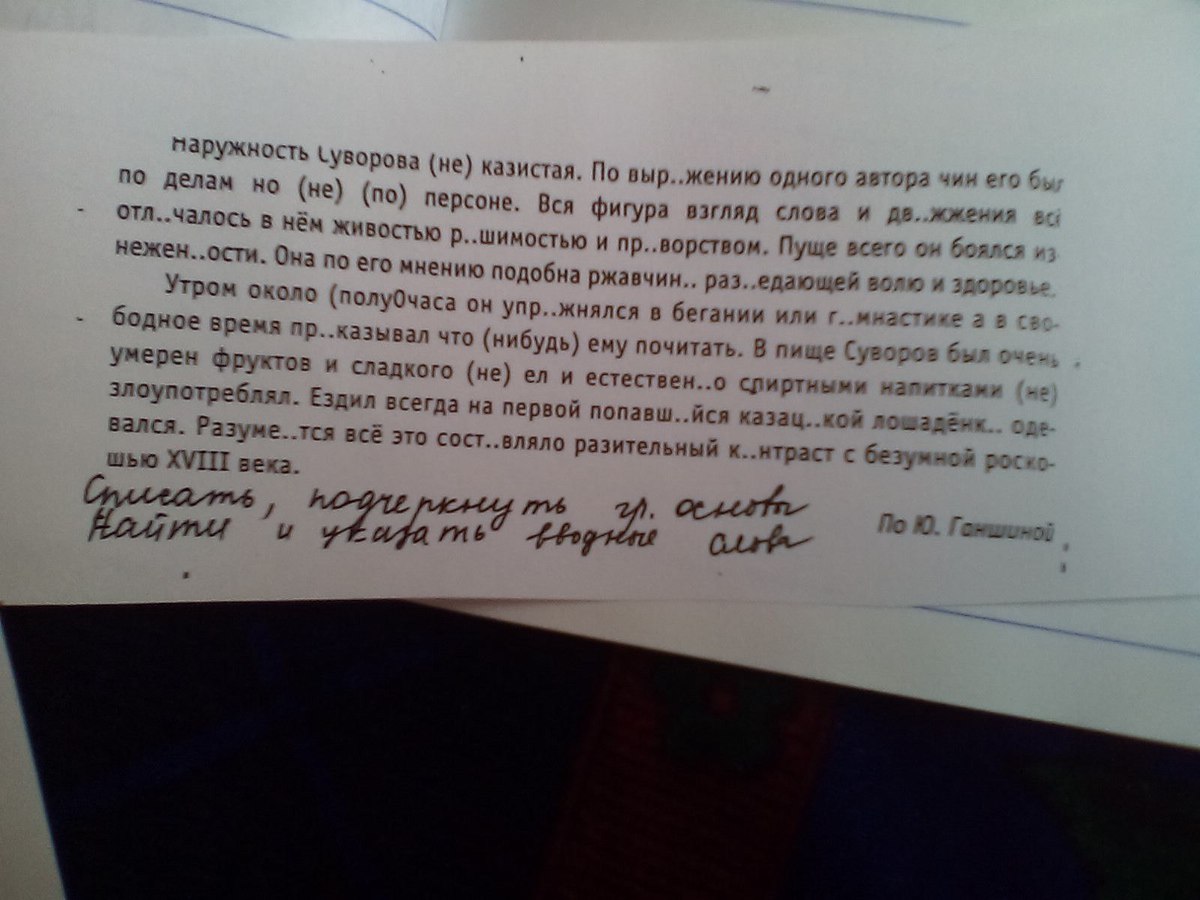 Наружность Суворова (не) казистая. По выр..жению одного автора чин его был
по делам но (не) (по) персоне. Вся фигура взгляд слова и дв..жжения всё
отл..чалось в нём живостью р..шимостью и пр..ворством. Пуще всего он боялся из-
нежен..ости. Она по его мнению подобна ржавчин.. раз..едающей волю и здоровье.
Утром около (полу0часа он упр..жнялся в бегании или г..мнастике а в сво-
бодное время пр..казывал что (нибудь) ему почитать. В пище Суворов был очень
умерен фруктов и сладкого (не) ел и естествен..о спиртными напитками (не)
злоупотреблял. Ездил всегда на первой попавш..йся казац..кой лошадёнк.. оде-
вался. Разуме..тся всё это сост..вляло разительный к..нтраст с безумной роско-
шью XVIII века.
Списать, подчеркнуть гр. основы
Найти и указать вводные слова
По Ю. Ганшиной